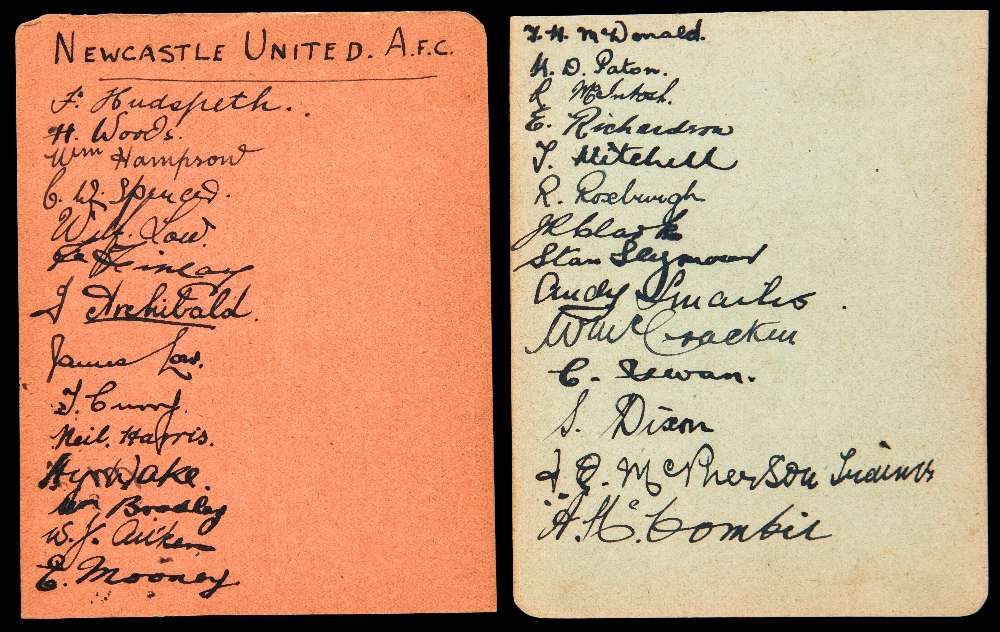 NEWCASTLE UNITED. A.F.C.
F. Hudspeth.
H. Woods.
Wm Hampson
C. W. Spencer.
Wilf. Low.
Finlay
J Archibald.
James Low.
T. Curry.
Neil. Harris.
Hy Wake.
Wm Bradley
W. J. Aitken
E. Mooney.
T. H. McDonald.
H. D. Paton.
R McIntosh.
E. Richardson
T. Mitchell
R. Roxburgh
J R Clark
Stan Seymour
Andy Smailes.
W McCracken
C. Swan.
S. Dixon
J. Q. McPherson Trainer
A. McCombie